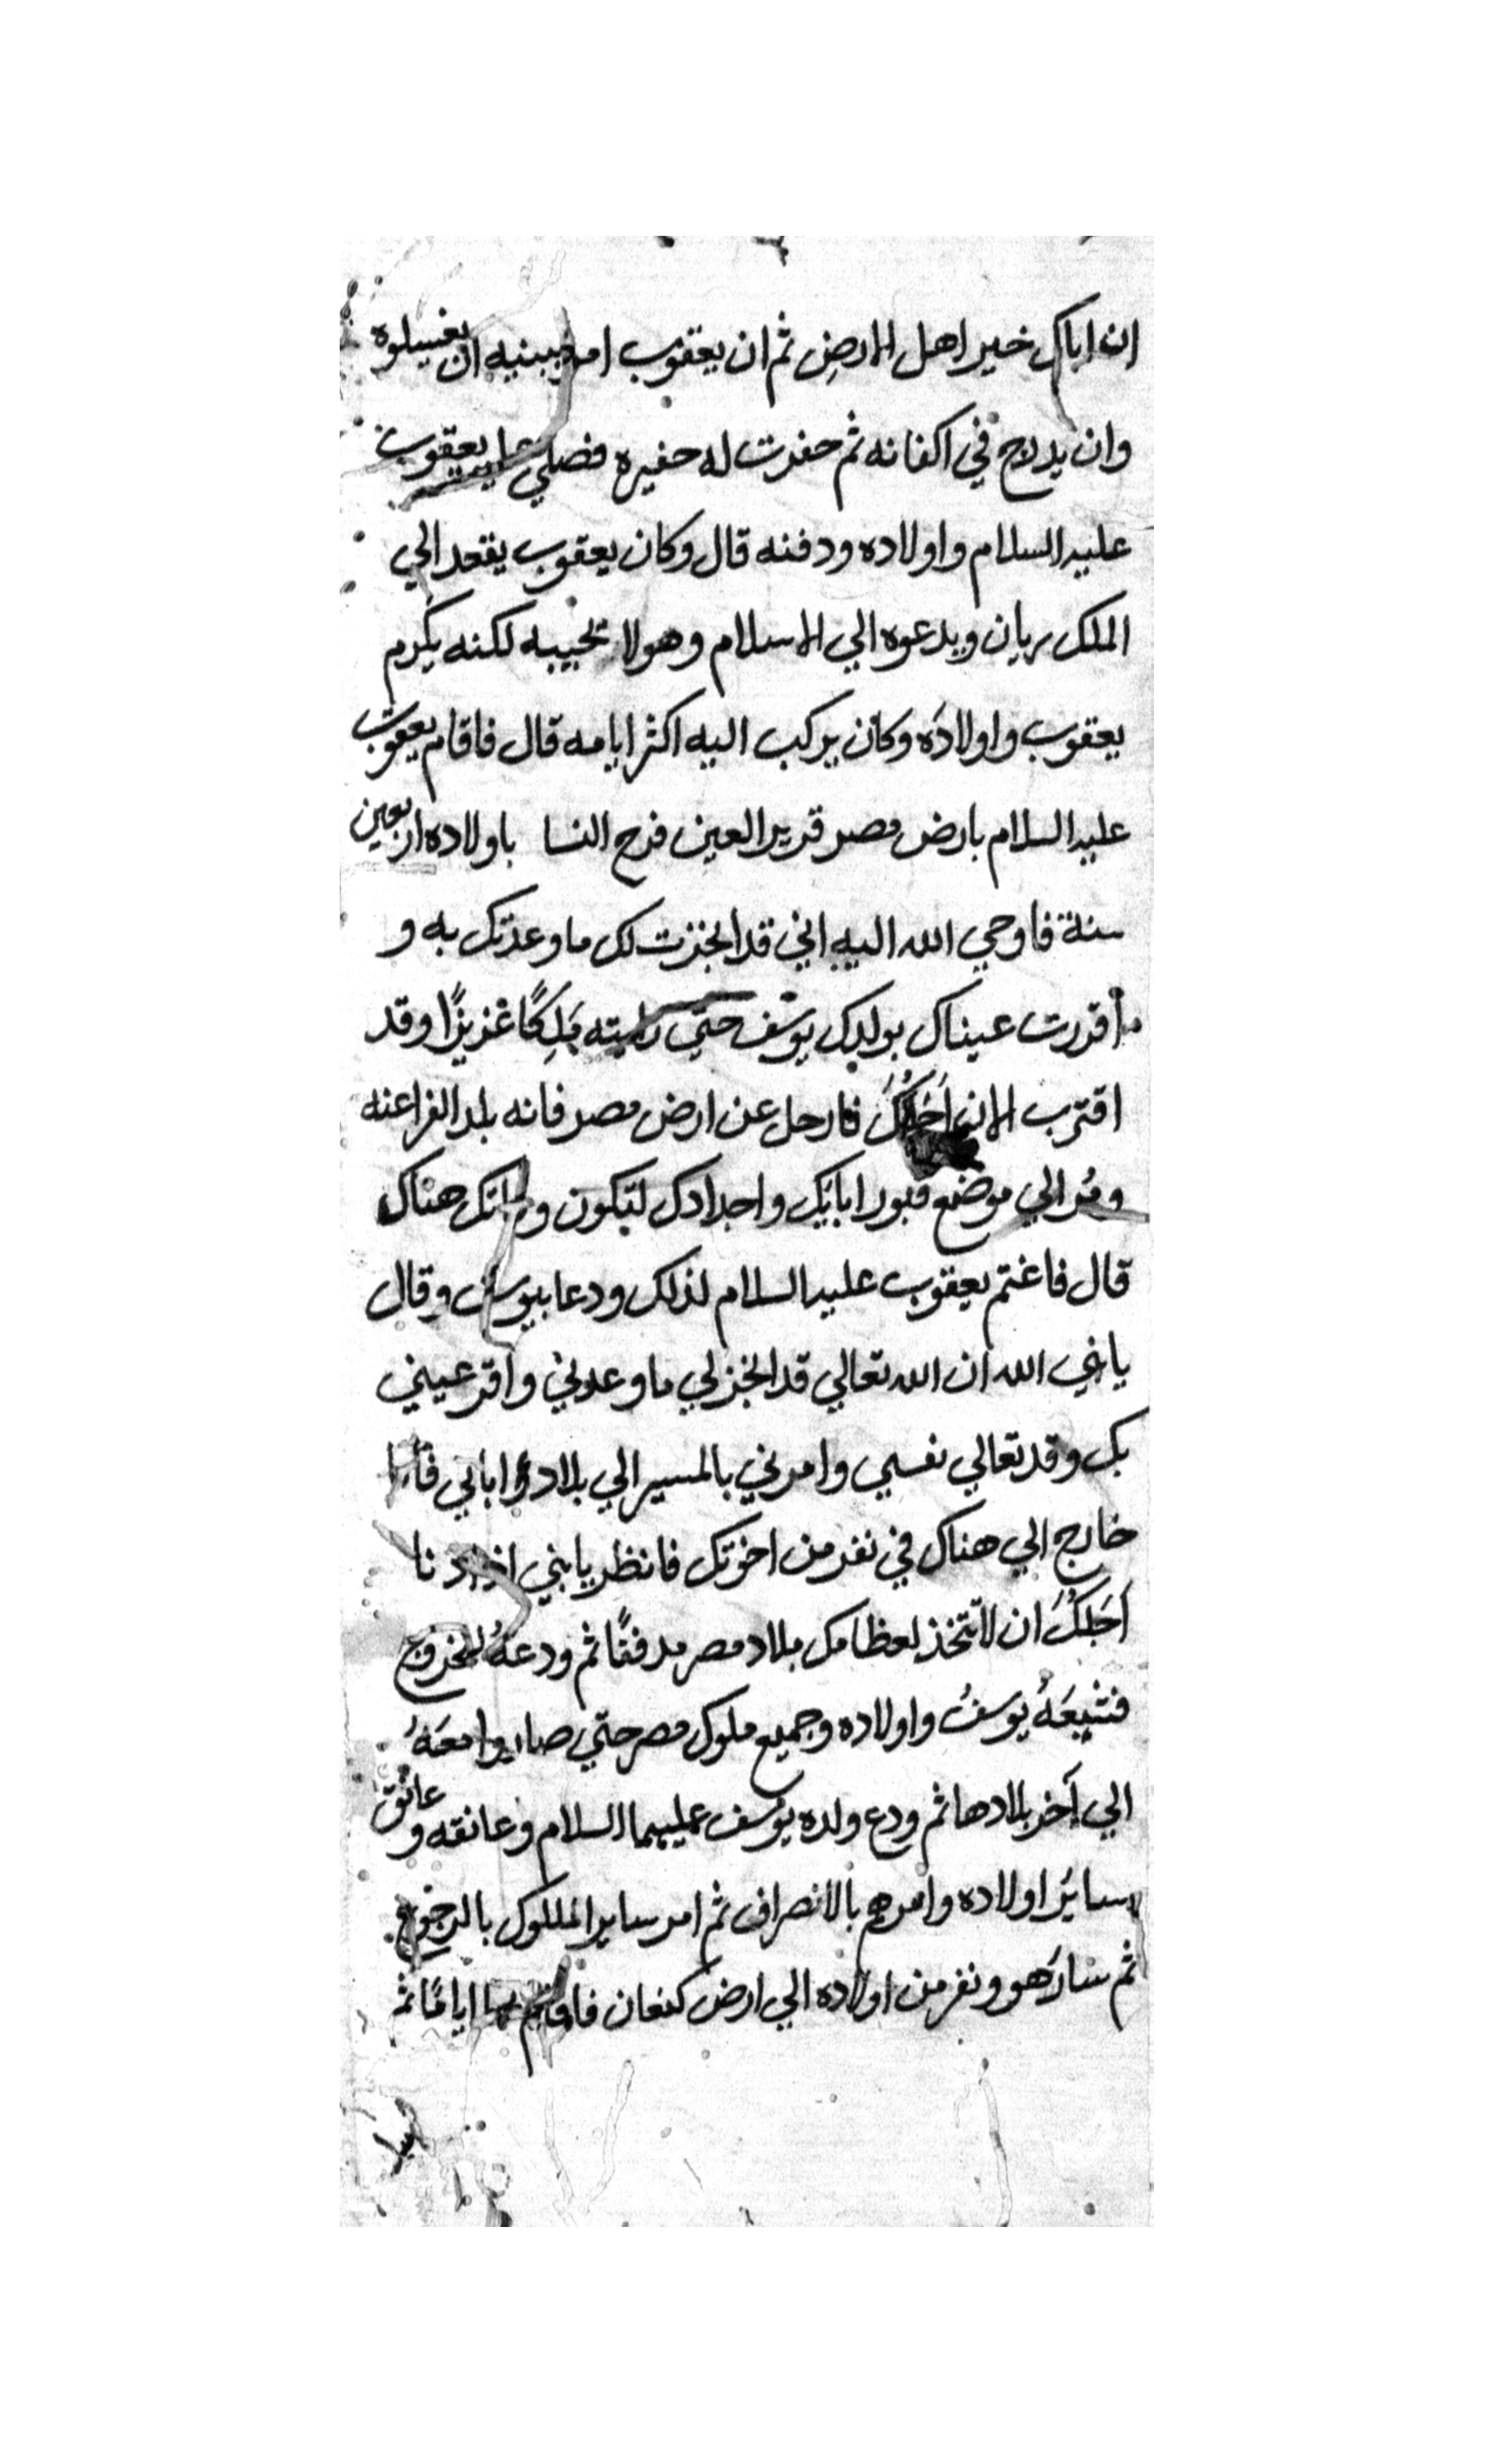 ان اباك خير اهل الارض ثم ان يعقوب امر ببنيه ان يغسلوه
وان يدرج في اكفانه ثم حفرت له حفيره فصلي عليه يعقوب
عليه السلام واولاده ودفنه قال وكان يعقوب يقعد الي
الملك ريان ويدعوه الي الاسلام وهو لا يجيبه لكنه يكرم
يعقوب واولادَه وكان يركب اليه اكثر ايامه قال فاقام يعقوب
عليه السلام بارض مصر قرير العين فرح النسا باولاده اربعين
سنة فاوحي الله اليه اني قد انجزت لك ما وعدتك به و
أقررت عيناك بولدك يوسف حتي رايته مَلِكًا عزيزًا وقد
اقترب الان اَجَلُكَ فارحل عن ارض مصر فانه بلد الفراعنه
ومُر الي موضع قبور ابايك واجدادك لتكون وفاتك هناك
قال فاغتم يعقوب عليه السلام لذلك ودعا بيوسف وقال
يا نبي الله ان الله تعالي قد انجز لي ما وعدني واقر عيني
بك وقد تعالي نفسي وامرني بالمسير الي بلاد ابايي فأنا
خارج الي هناك في نفر من اخوتك فانظر يا بني اذا دنا
اَجَلُكَ ان لا تتخذ لعظامك بلاد مصر مدفنًا ثم ودعهُ للخروج
فشيعَهُ يوسفُ واولاده وجميع ملوك مصر حتي صاروا معَهُ
الي آخر بلادها ثم ودع ولده يوسف عليهما السلام وعانقه وعانق
ساير اولاده وامرهم بالانصراف ثم امر ساير الملوك بالرجوع
ثم سار هو ونفر من اولاده الي ارض كنعان فاقام بها ايامًا ثم